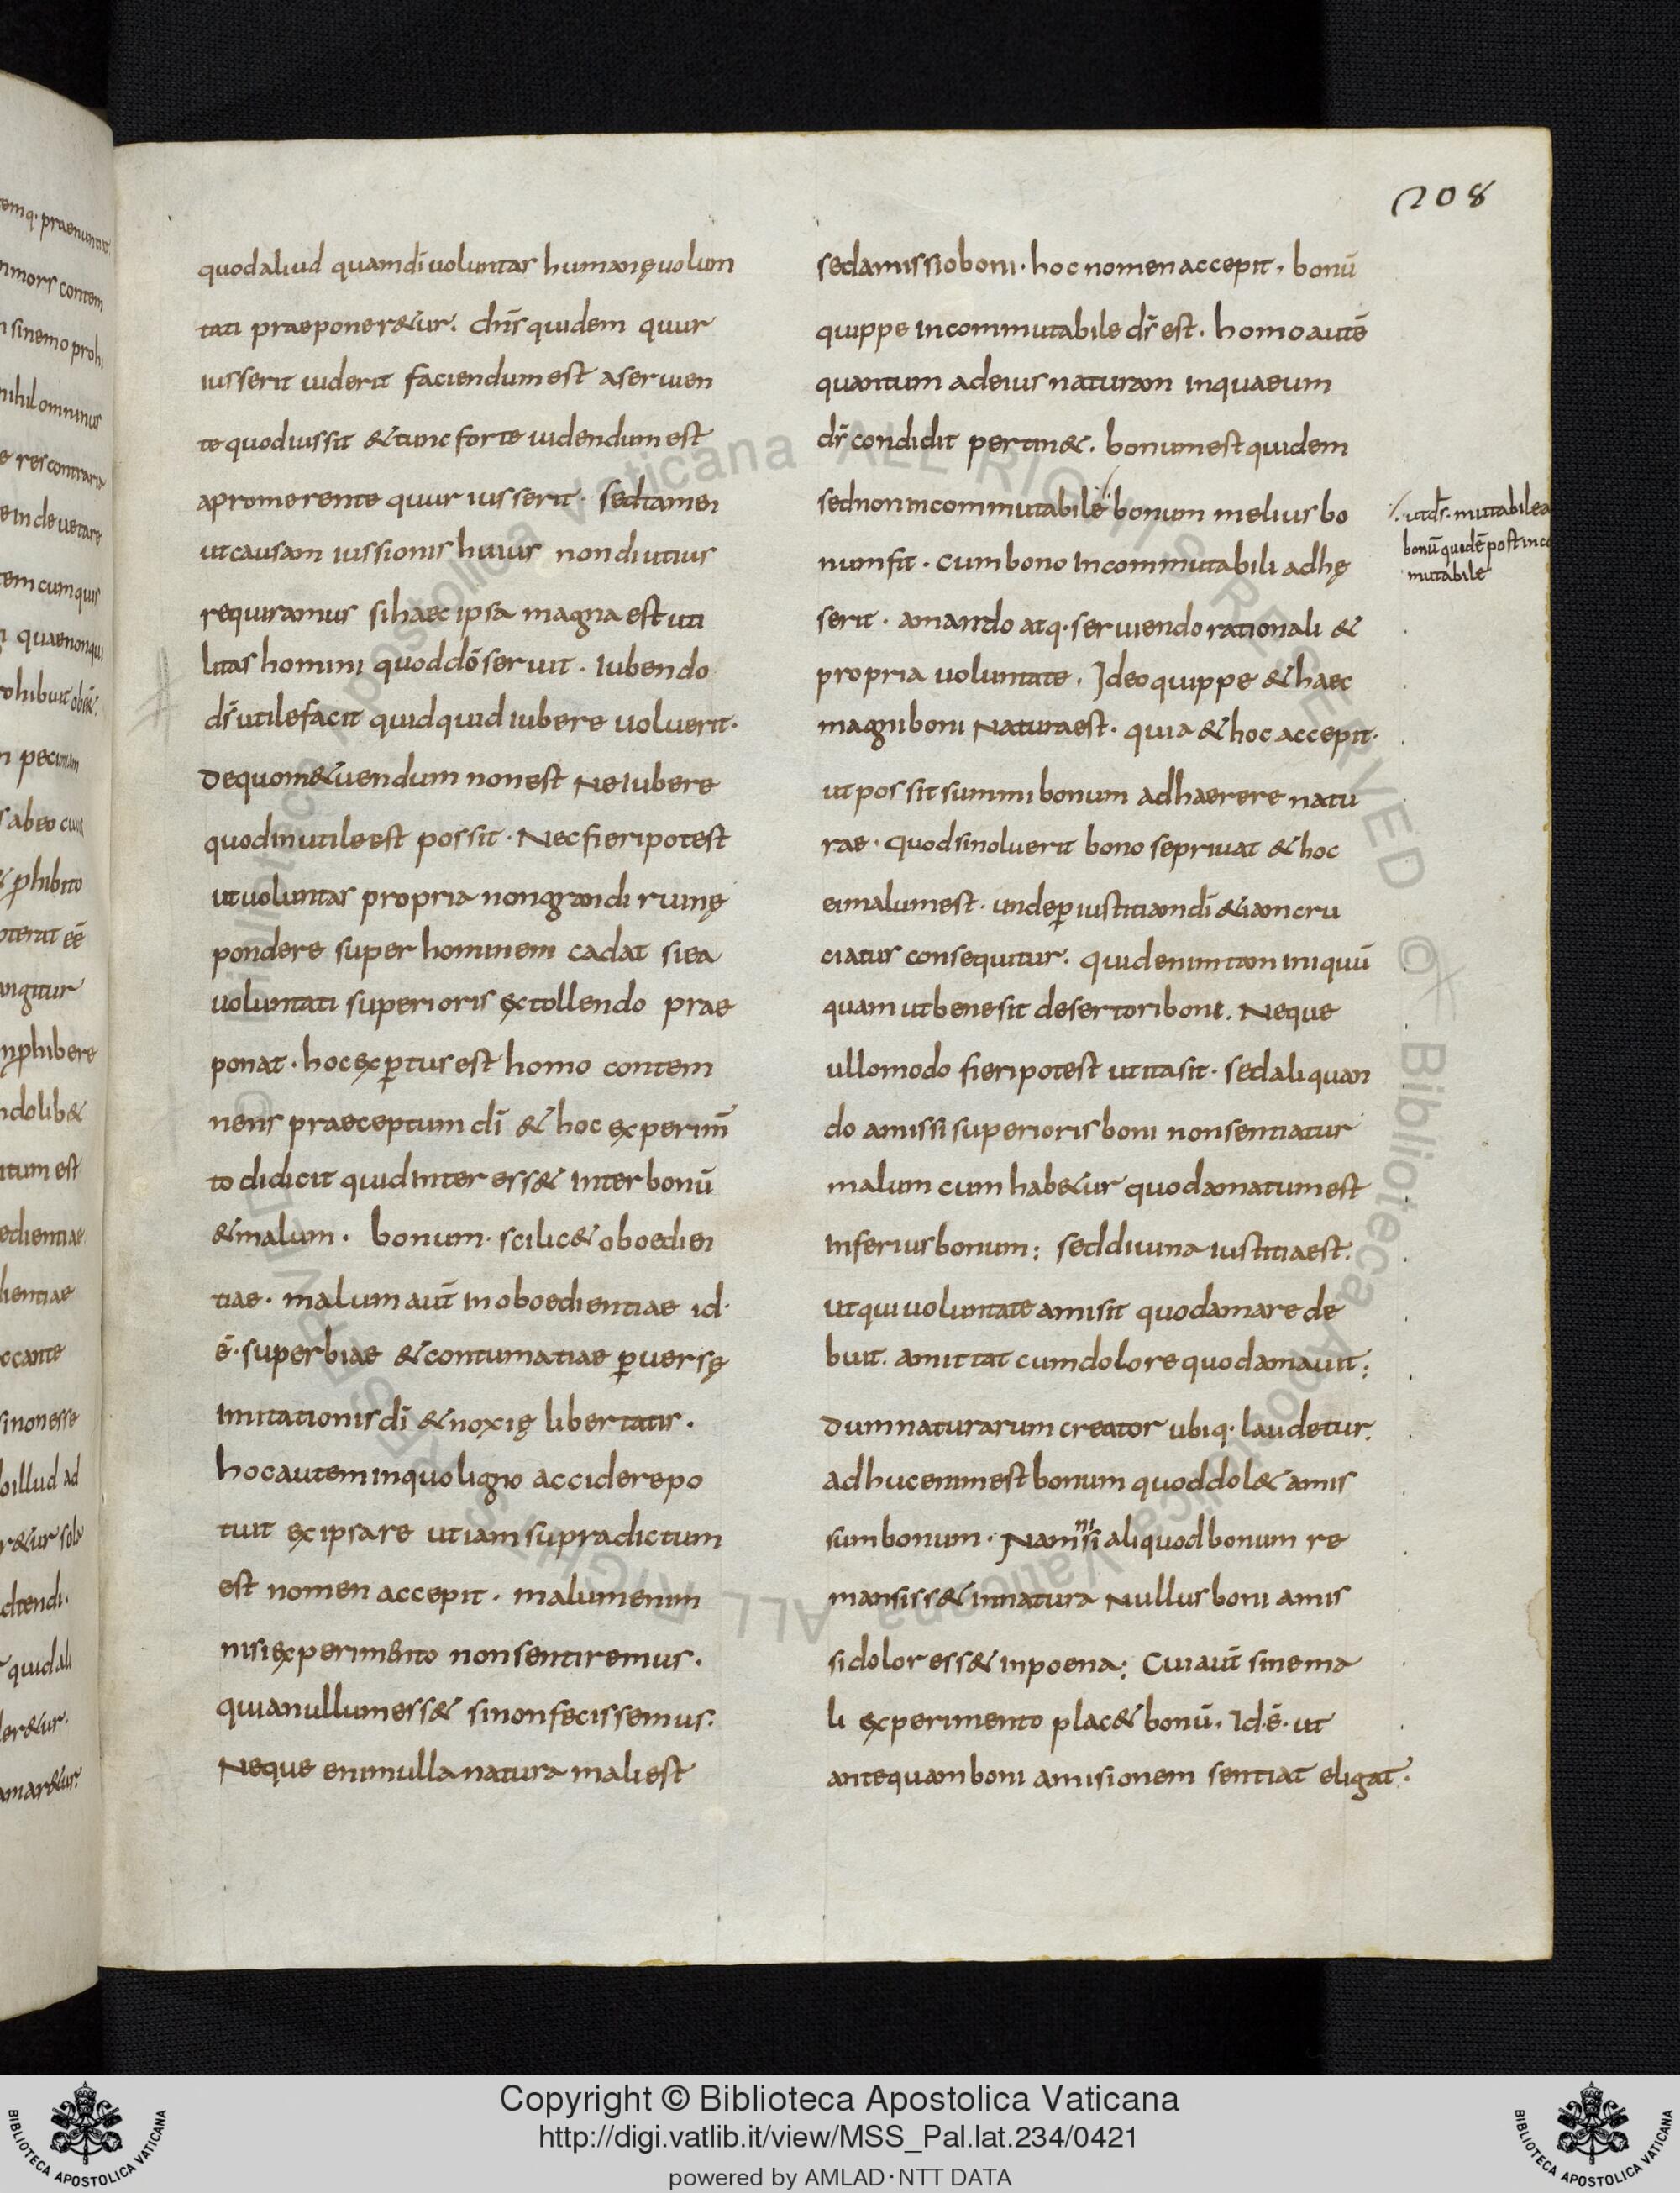 208
quod aliud quam dī uoluntas humanę uolun
tati praeponer&ur. dn̄s quidem quur
iusserit uiderit faciendum est a seruien
te quod iussit & tunc forte uidendum est
a promerente quur iusserit. sed tamen
ut causam iussionis huius non diutius
requiramus si haec ipsa magna est uti
litas homini quod dō seruit. Iubendo
ds̄ utile facit quidquid iubere uoluerit.
De quo m&uendum non est Ne iubere
quod inutile est possit. Nec fieri potest
ut uoluntas propria non grandi ruinę
pondere super hominem cadat si ea
uoluntati superioris extollendo prae
ponat. hoc exꝑtus est homo contem
nens praeceptum dī & hoc experim̄
to didicit quid inter ess& inter bonū
& malum. bonum. scilic& oboedien
tiae. malum aut̄ inoboedientiae id.
ē. superbiae & contumatiae ꝑuersę
imitationis dī & noxię libertatis.
hoc autem in quo ligno accidere po
tuit ex ipsa re ut iam supra dictum
est nomen accepit. malum enim
nisi experimento non sentiremus.
quia nullum ess& si non fecissemus.
Neque enim ulla natura mali est
sed amissio boni. hoc nomen accepit, bonū
quippe incommutabile ds̄ est. homo autē
quantum ad eius naturam in qua eum
ds̄ condidit pertin&. bonum est quidem
sed non incommutabile ⁒ bonum melius bo
num fit. cum bono incommutabili adhę
serit. amando atq. seruiendo rationali &
propria uoluntate. Ideo quippe & haec
magni boni Natura est. quia & hoc accepit.
ut possit summi bonum adhaerere natu
rae. quod si noluerit bono se priuat & hoc
ei malum est. unde ꝑ iustitiam dī &iam cru
ciatus consequitur. quid enim tam iniquū
quam ut bene sit desertori boni. Neque
ullo modo fieri potest ut ita sit. sed aliquan
do amissi superioris boni non sentiatur
malum cum hab&ur quod amatum est
inferius bonum: sed diuina iustitia est.
ut qui uoluntate amisit quod amare de
buit. amittat cum dolore quod amauit:
Dum naturarum creator ubiq. laudetur.
adhuc enim est bonum quod dol& amis
sum bonum. Nam ni si aliquod bonum re
mansiss& in natura Nullus boni amis
si dolor ess& in poena: Cui aut̄ sine ma
li experimento plac& bonū. Id. ē. ut
antequam boni amisionem sentiat eligat.
⁒ ut ds̄. mutabile a
bonū quidē post inco
mutabile